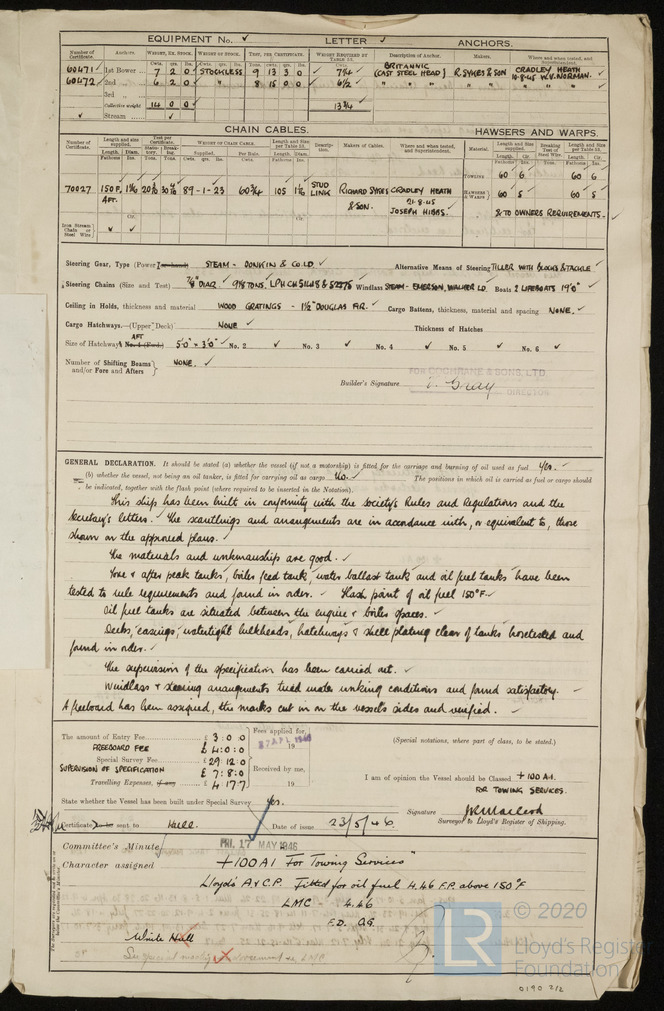 EQUIPMENT No. ✓ LETTER ✓ ANCHORS.
Number of Certificate. Anchors. WEIGHT, EX. STOCK. WEIGHT OF STOCK. TEST, PER CERTIFICATE. WEIGHT REQUIRED BY TABLE Description of Anchor. Makers. Where and when tested, and Superintendent.
Cwts. qrs. lbs. Cwts. qrs. lbs. Cwts.
60471 1st Bower 7 2 0 STOCKLESS 9 13 3 0 7¼ BRITANNIC (CAST STEEL HEAD) R. SYKES & SON CRADLEY HEATH 10-8-45 W.V. NORMAN.
60472 2nd „ 6 2 0 " 8 15 0 0 6½ " " " " " "
3rd „
Collective weight 14 0 0 13¾
Stream
CHAIN CABLES. HAWSERS AND WARPS.
Number of Certificate. Length and size supplied. Test per Certificate. WEIGHT OF CHAIN CABLE. Length and Size per Table 53. Description. Makers of Cables. Where and when tested, and Superintendent. Material. Length and Size supplied. Breaking Test of Steel Wire. Length and Size per Table 53.
Length. Diam. Statutory. Breaking. Supplied. Per Rule. Length. Diam. Length. Cir. Length. Cir.
Fathoms Ins. Tons. Tons. Cwts. qrs. lbs. Cwts. Fathoms Ins. Fathoms Ins. Tons. Fathoms Ins.
TOWLINE 60 6 60 6
70027 150 F. 89-1-23 60¾ 105 STUD LINK RICHARD SYKES & SON. CRADLEY HEATH 21-8-45 JOSEPH HIBBS. HAWSERS & WARPS 60 5 60 5
AFT. & TO OWNERS REQUIREMENTS.
Iron Stream Chain or Steel Wire
Steering Gear, Type (Power STEAM - DONKIN & CO. LD. Alternative Means of Steering TILLER WITH BLOCKS & TACKLE
Steering Chains (Size and Test) ⅞" DIAR. 9⅛ TONS. Windlass STEAM - EMERSON, WALKER LD. Boats 2 LIFEBOATS 19'0"
Ceiling in Holds, thickness and material WOOD GRATINGS - 1½" DOUGLAS FIR. Cargo Battens, thickness, material and spacing NONE.
Cargo Hatchways.—(Upper Deck) NONE Thickness of Hatches
Size of Hatchways AFT No. 1 (Fwd.) 5'0" × 3'0" No. 2 No. 3 No. 4 No. 5 No. 6
Number of Shifting Beams and/or Fore and Afters NONE.
FOR COCHRANE & SONS, LTD.
Builder's Signature Gray
DIRECTOR
GENERAL DECLARATION. It should be stated (a) whether the vessel (if not a motorship) is fitted for the carriage and burning of oil used as fuel Yes.
(b) whether the vessel, not being an oil tanker, is fitted for carrying oil as cargo No. The positions in which oil is carried as fuel or cargo should
be indicated, together with the flash point (where required to be inserted in the Notation).
This ship has been built in conformity with the Society's Rules and Regulations and the
Secretary's letters. The scantlings and arrangements are in accordance with, or equivalent to, those
shown on the approved plans.
The materials and workmanship are good.
Fore & after peak tanks, boiler feed tank, water ballast tank and oil fuel tanks have been
tested to rule requirements and found in order. Flash point of oil fuel 150°F.
Oil fuel tanks are situated between the engine & boiler spaces.
Decks, casings, watertight bulkheads, hatchways & shell plating clear of tanks hosetested and
found in order.
The supervision of the specification has been carried out.
Windlass & steering arrangements tried under working conditions and found satisfactory.
A freeboard has been assigned, the marks cut in on the vessel's sides and verified.
The amount of Entry Fee £ 3 : 0 : 0 Fees applied for,
FREEBOARD FEE £ 4 : 0 : 0 19
Special Survey Fee £ 29 : 12 : 0
SUPERVISION OF SPECIFICATION £ 7 : 8 : 0 Received by me,
Travelling Expenses, if any £ 4 17 7 19
(Special notations, where part of class, to be stated.)
I am of opinion the Vessel should be Classed +100 A1.
FOR TOWING SERVICES.
State whether the Vessel has been built under Special Survey Yes.
Signature
Surveyor to Lloyd's Register of Shipping.
Certificate to be sent to Hull. Date of issue 23/5/46.
Committee's Minute FRI. 17 MAY 1946
Character assigned +100A1 "For Towing Services"
Lloyd's A & C.P. Fitted for oil fuel 4.46 F.P. above 150°F
LMC 4.46
F.D. O.G.
Write Hull
© 2020
LR Lloyd's Register Foundation
0190 2/2